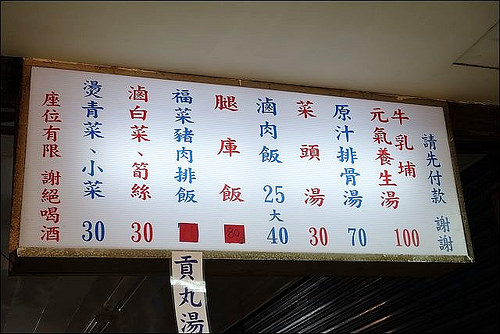 請先付款 謝謝
牛乳埔
元氣養生湯 100
原汁排骨湯 70
菜頭湯 30
滷肉飯 25 大 40
腿庫飯
福菜豬肉排飯
滷白菜、筍絲 30
燙青菜、小菜 30
座位有限 謝絕喝酒
貢丸湯